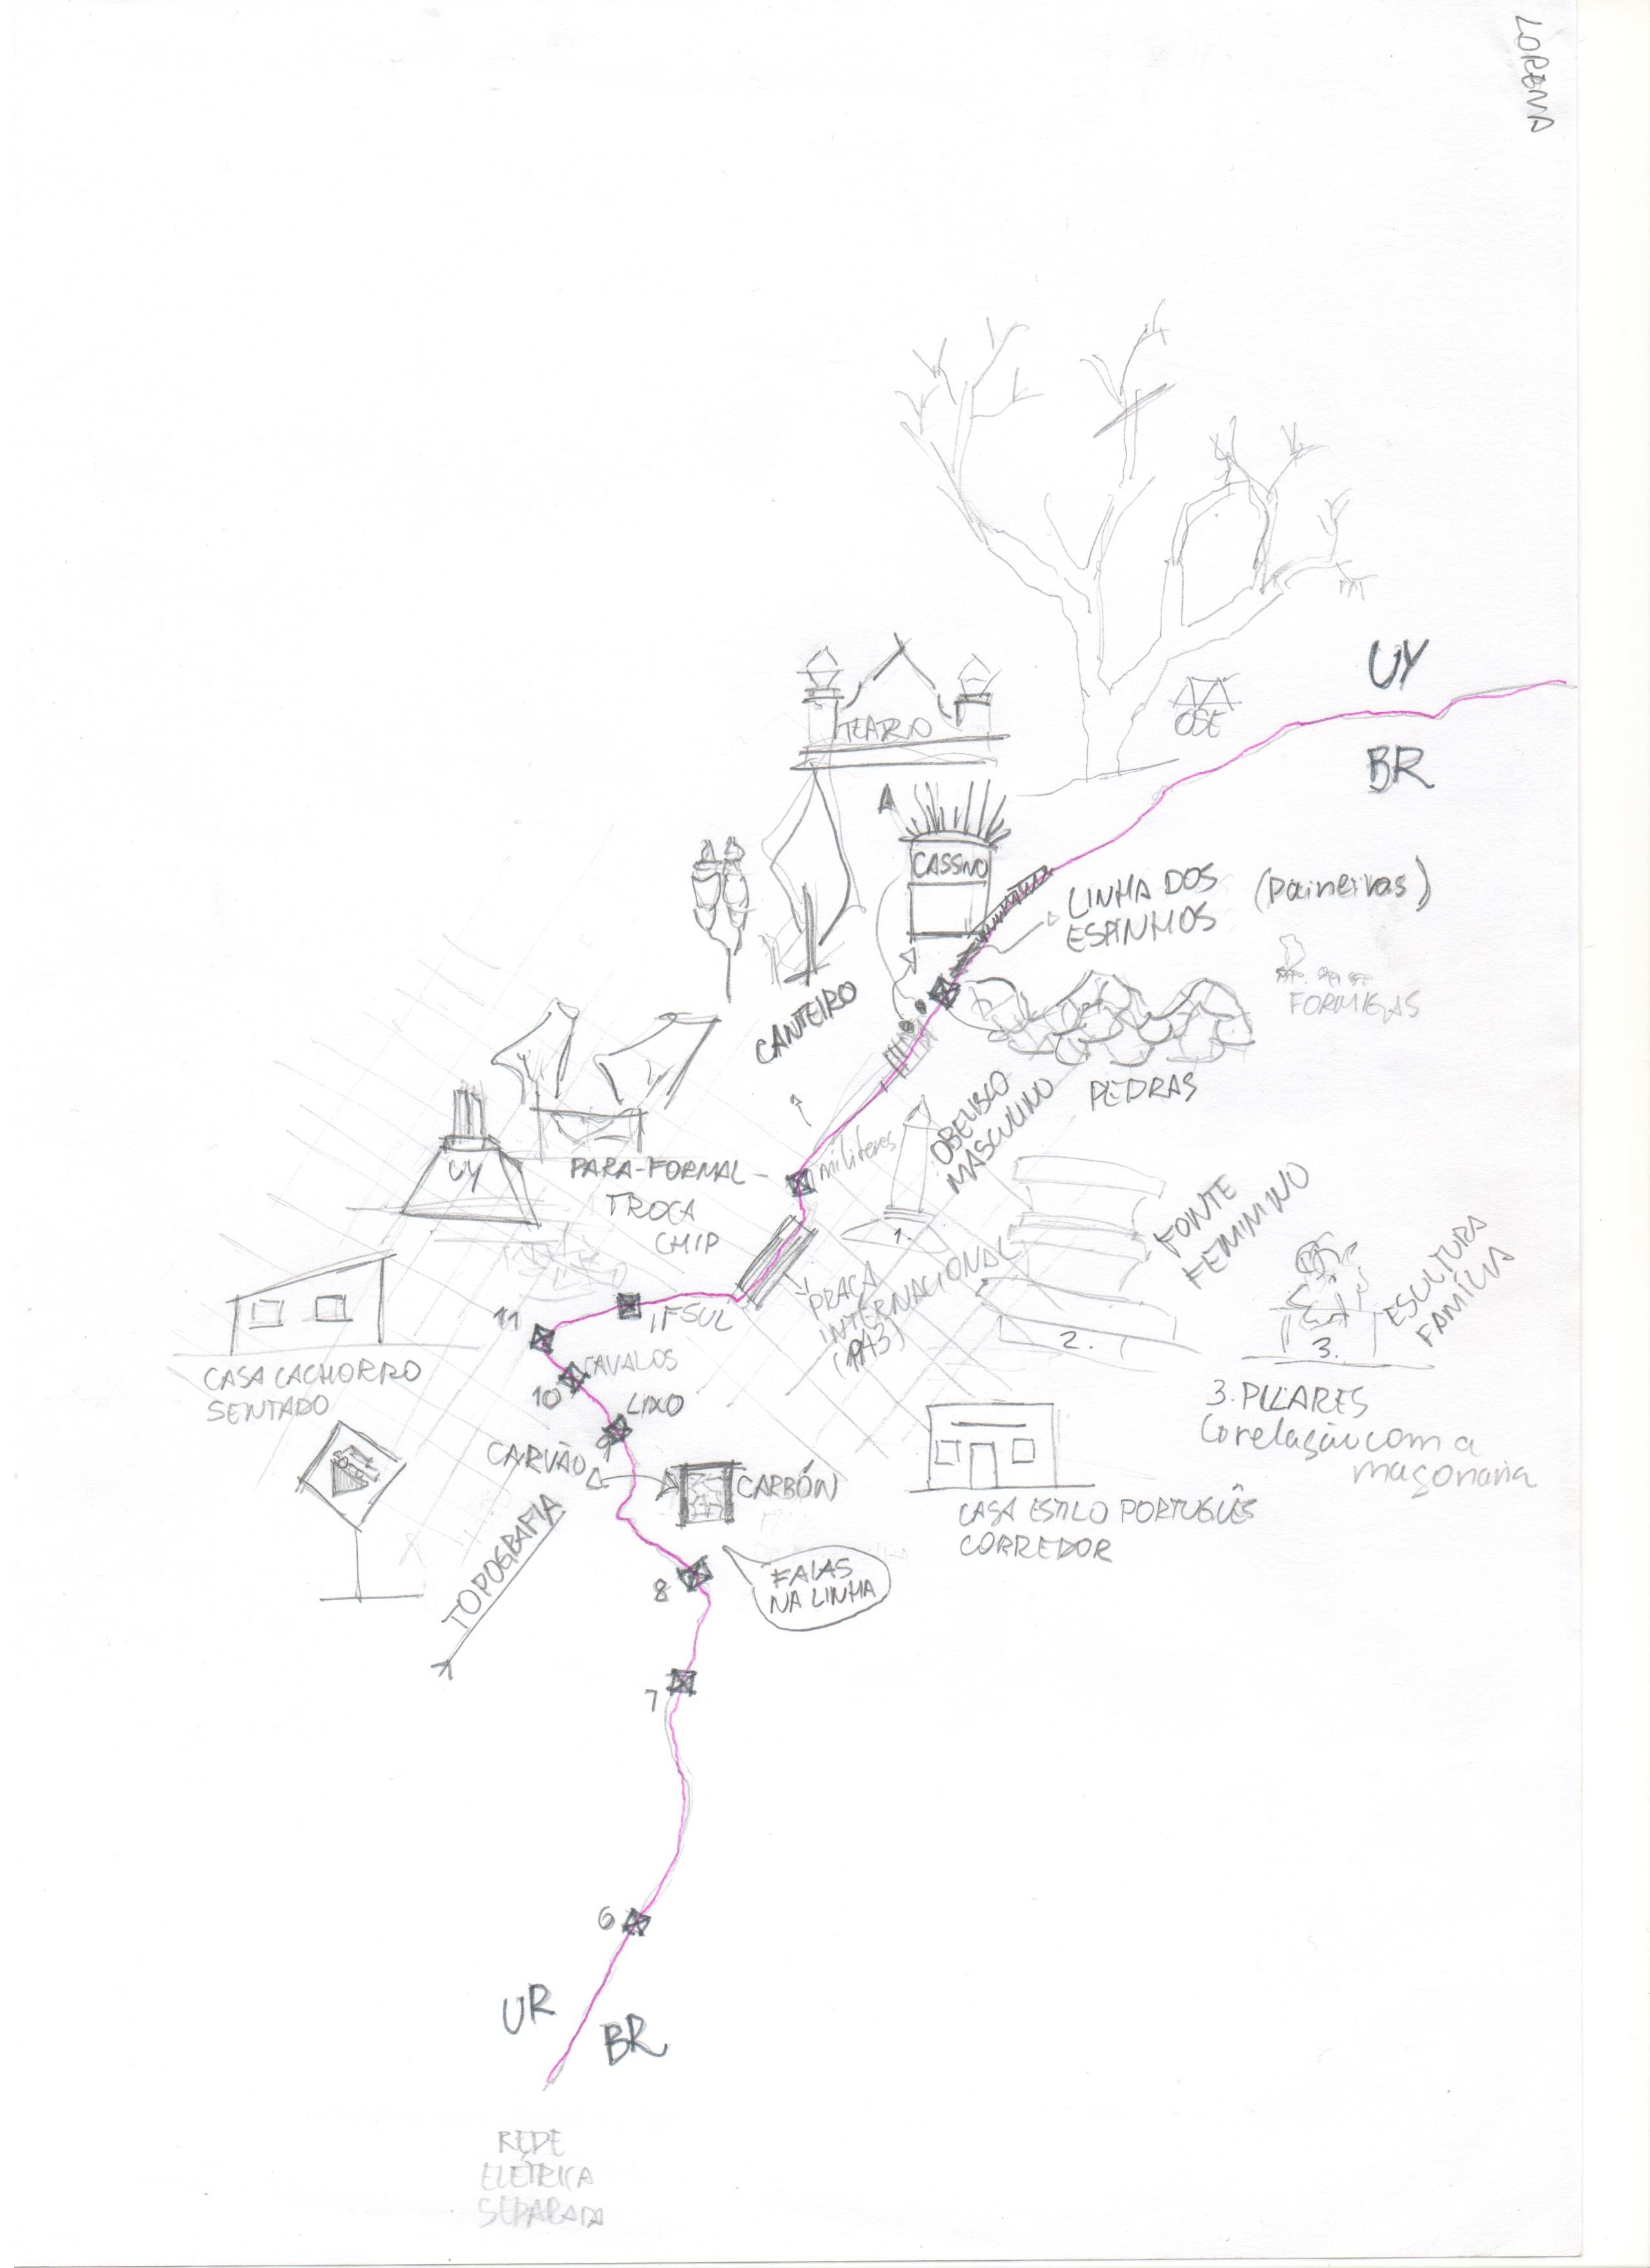 LORENA
UY
BR
OSE
TEATRO
CASSINO
LINHA DOS (paineiras)
ESPINHOS
FORMIGAS
PEDRAS
CANTEIRO
OBELISCO
MASCULINO
militares
UY
PARA-FORMAL
TROCA
CHIP
1.
FONTE
FEMININO
2.
ESCULTURA
FAMÍLIA
3.
PRAÇA
INTERNACIONAL
IFSUL
11
CAVALOS
10
LIXO
9
CASA CACHORRO
SENTADO
3. PILARES
Corelação com a
maçonaria
CARVÃO
CARBÓN
CASA ESTILO PORTUGUÊS
CORREDOR
TOPOGRAFIA
FALAS
NA LINHA
8
7
6
UR
BR
REDE
ELÉTRICA
SEPARADA